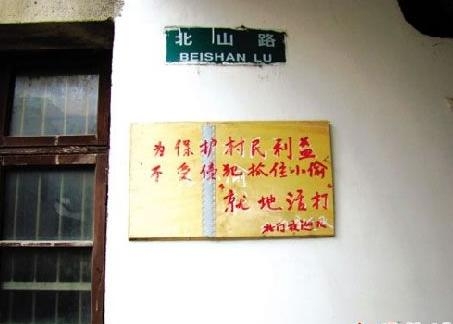 北山路
BEISHAN LU
为保护村民利益
不受侵犯抓住小偷
"就地活打"